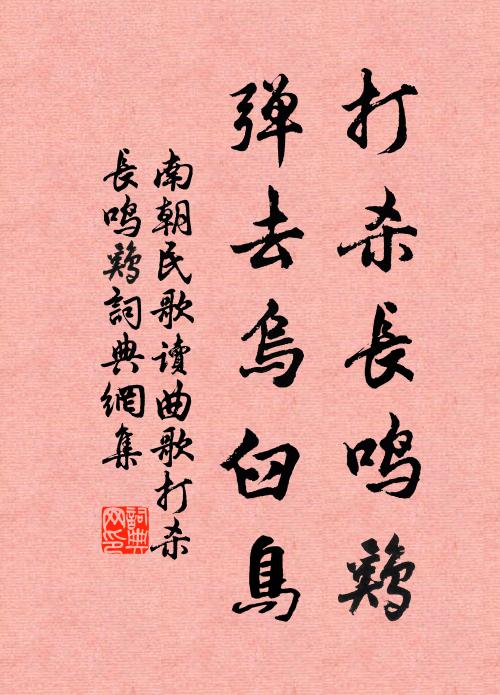 打杀長鸣鷄
弹去烏臼鳥
南朝民歌讀曲歌打杀
長鸣鷄詞典網集
詞典网印